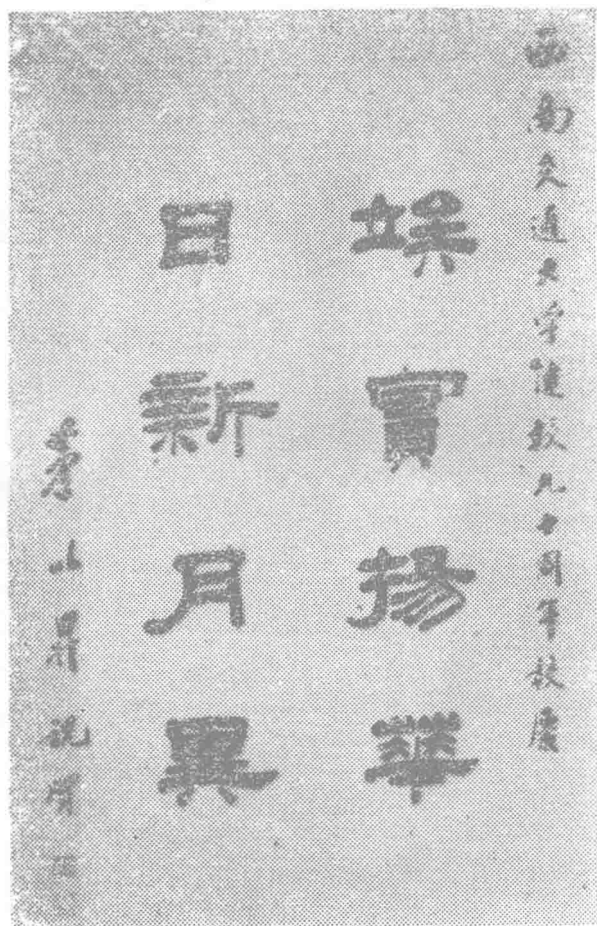 西南交通大學建校九十周年校慶
竢實揚華
日新月異
山 祝賀